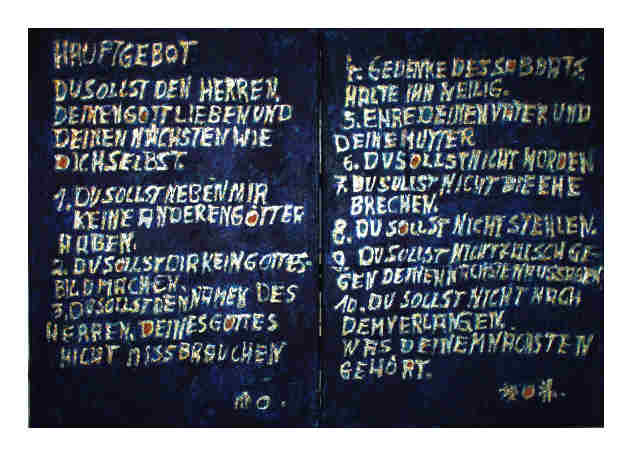 HAUPTGEBOT
DU SOLLST DEN HERREN,
DEINEN GOTT LIEBEN UND
DEINEN NÄCHSTEN WIE
DICH SELBST
1. DU SOLLST NEBEN MIR
KEINE ANDEREN GÖTTER
HABEN.
2. DU SOLLST DIR KEIN GOTTES-
BILD MACHEN
3. DU SOLLST DEN NAMEN DES
HERREN, DEINES GOTTES
NICHT MISSBRAUCHEN
4. GEDENKE DES SABBATS,
HALTE IHN HEILIG.
5. EHRE DEINEN VATER UND
DEINE MUTTER
6. DU SOLLST NICHT MORDEN
7. DU SOLLST NICHT DIE EHE
BRECHEN.
8. DU SOLLST NICHT STEHLEN.
9. DU SOLLST NICHT FALSCH GE-
GEN DEINEN NÄCHSTEN AUSSAGEN
10. DU SOLLST NICHT NACH
DEM VERLANGEN,
WAS DEINEM NÄCHSTEN
GEHÖRT.